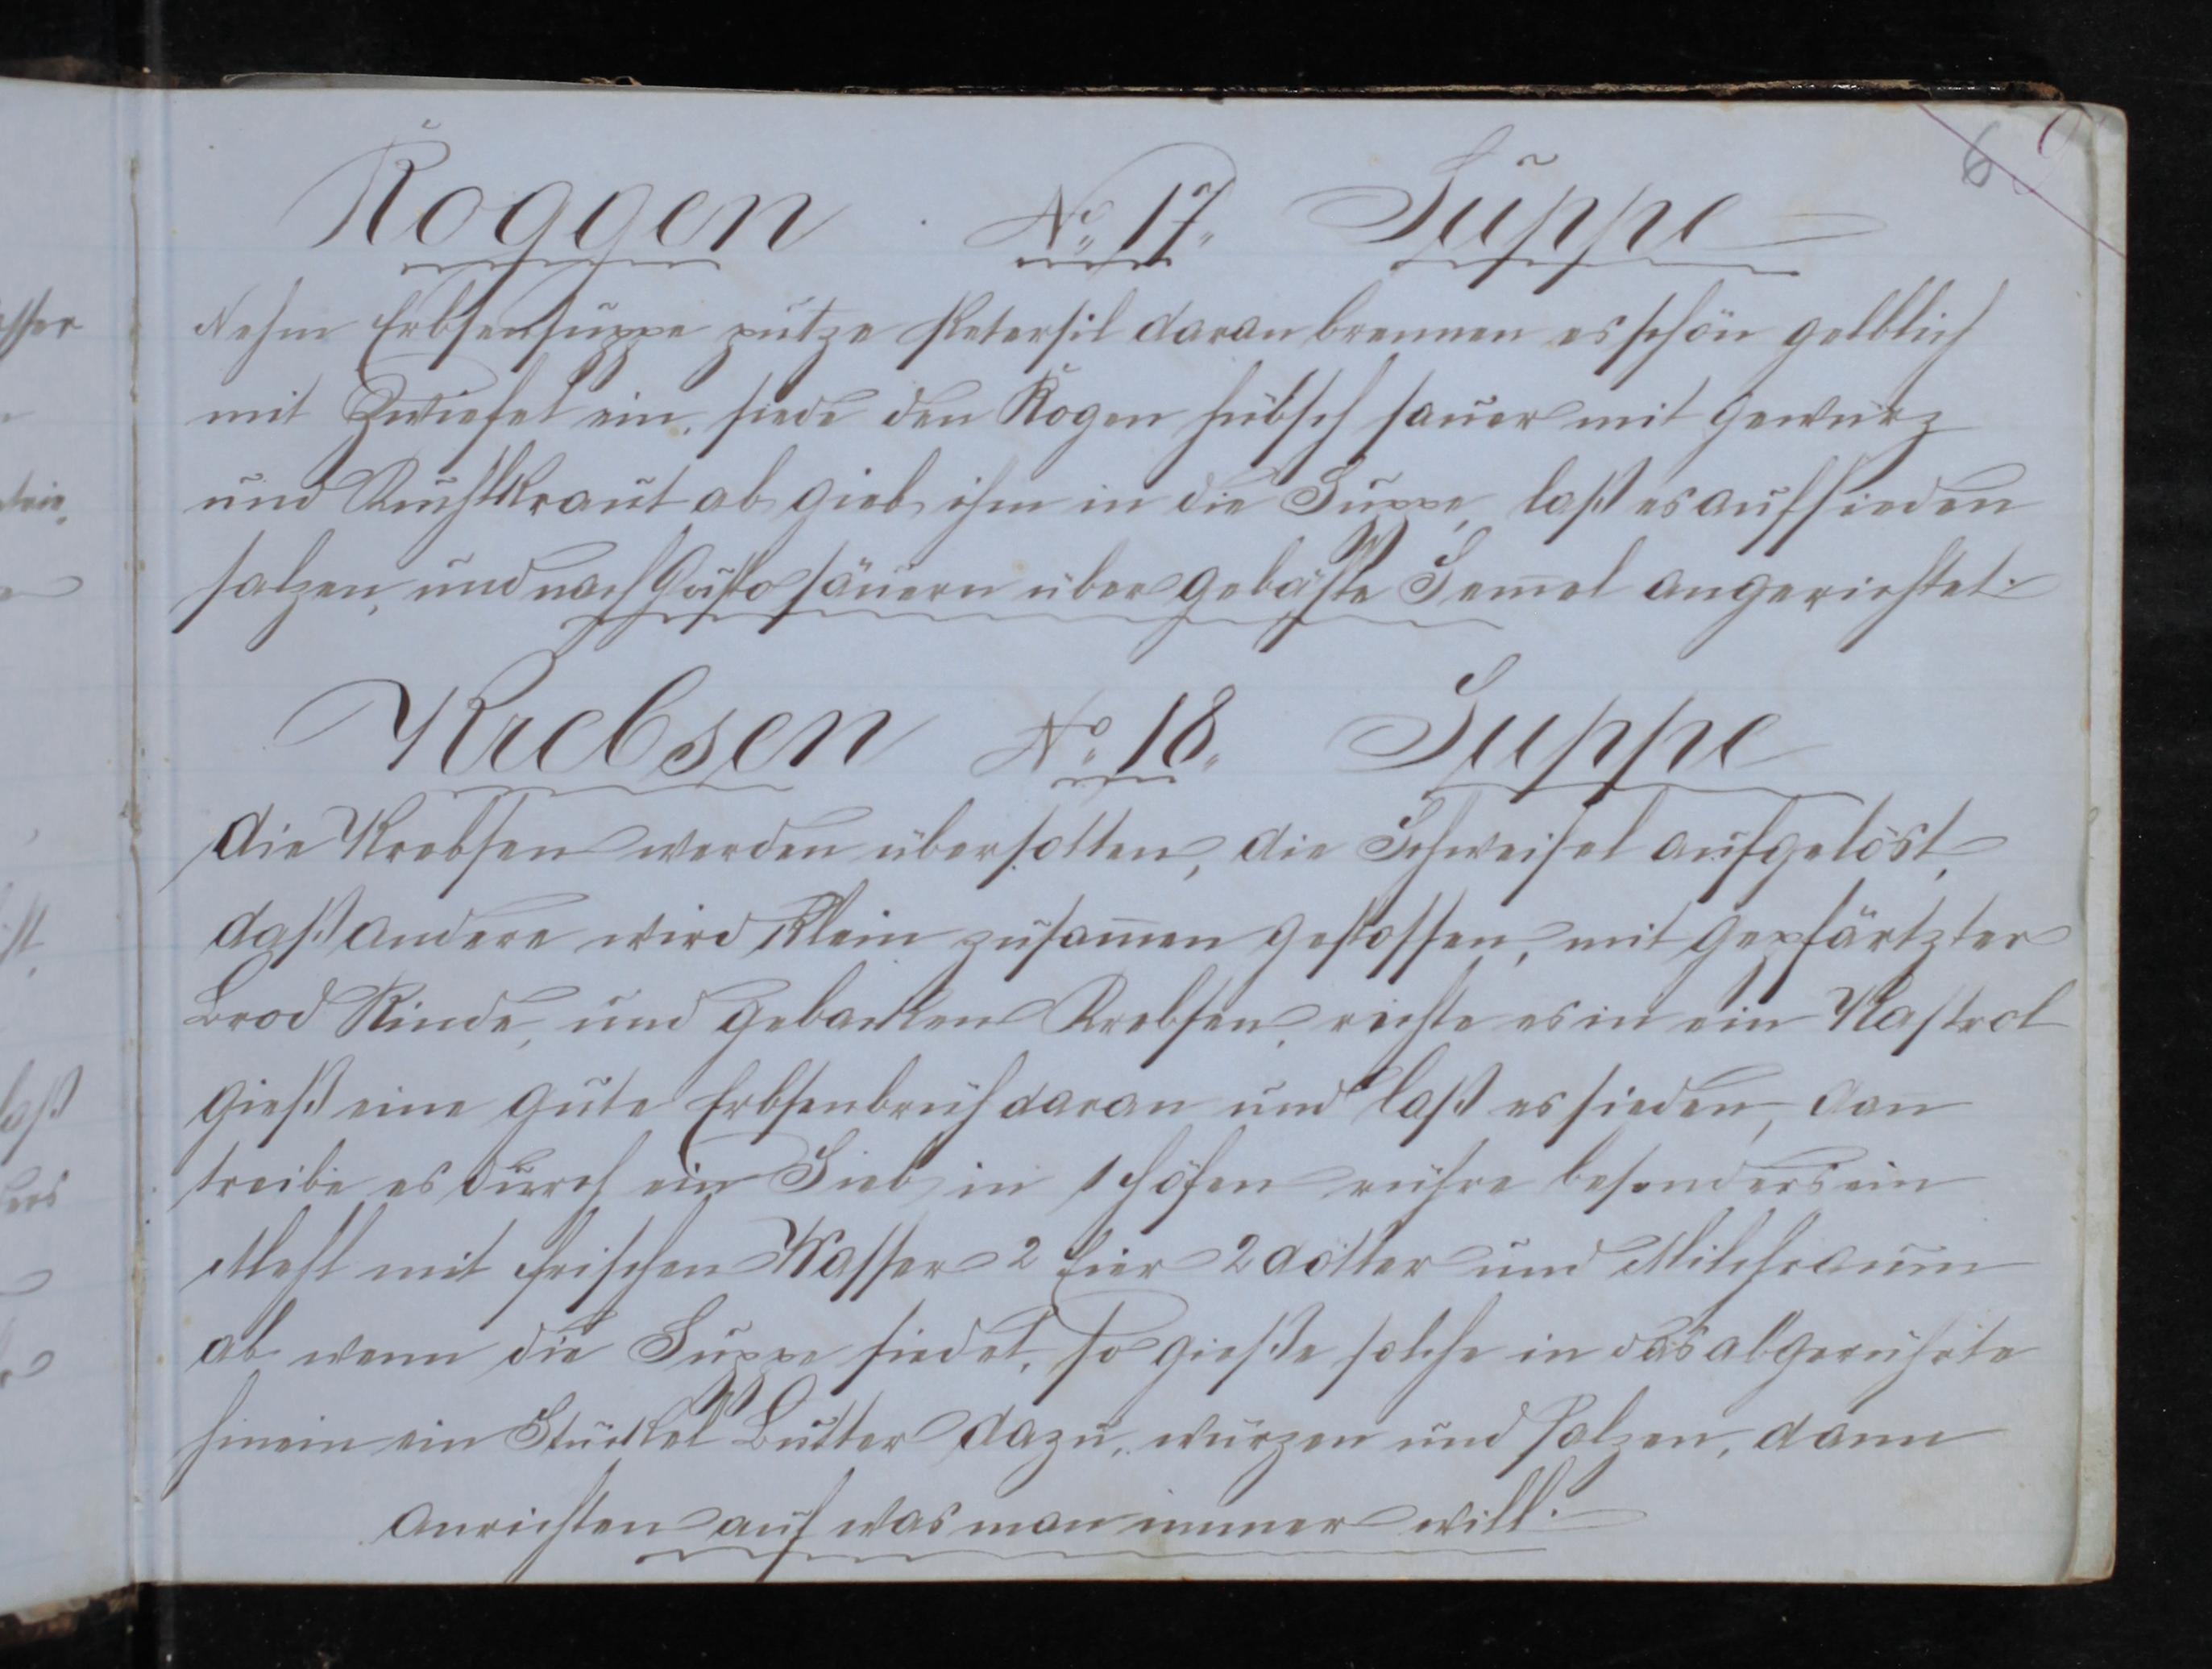 Roggen No. 17. Suppe
Nehm Erbsensuppe putze Petersil daran brennen es schön gelblich
mit Zwiefel ein, siede den Rogen hübsch sauer mit gewürz
und Kuchlkraut ab gieb ihm in die Suppe, laß es aufsieden
salzen, und nach Gusto säuern über gebähte Sem̅el angerichtet.
Krebsen No. 18. Suppe
die Krebsen werden übersotten, die Schweifel aufgelöst,
daß andere wird klein zusam̅en gestossen, mit
Brod Rinde, und gebacken Krebsen, richte es in ein Kastrol
gieß eine gute Erbsenbrüh daran und laß es sieden, dan̅
treibe es durch ein Sieb in 1 Höfen rühre besonders ein
Mehl mit frischen Wasser 2 Eier 2 dötter und Milchraum
ab wenn die Suppe siedet, so gieße solche in das abgerührte
hinein ein Stückel Butter dazu, würzen und salzen, dann
anrichten auf was man immer will.
6